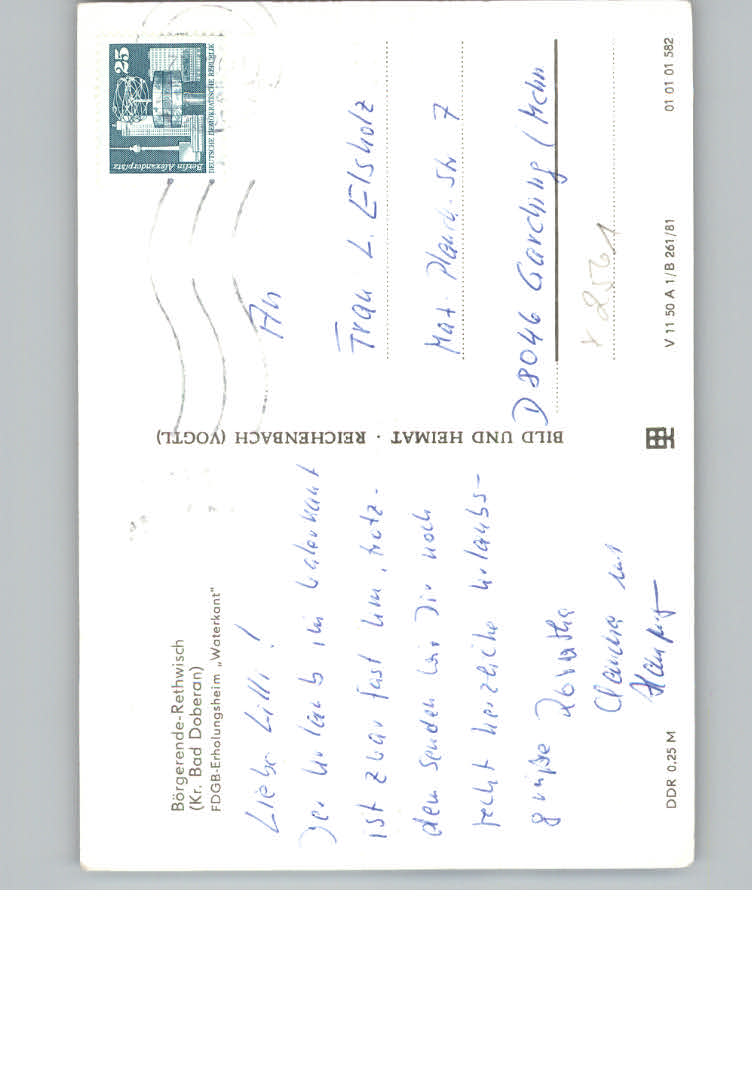 Börgerende-Rethwisch
(Kr. Bad Doberan)
FDGB-Erholungsheim „Waterkant"
Liebe Lilli!
Der Urlaub im Waterkant
ist zwar fast um, trotz-
dem senden wir Dir noch
recht herzliche Urlaubs-
grüße Dorothea
Claudia und
DDR 0,25 M
BILD UND HEIMAT · REICHENBACH (VOGTL)
25
DEUTSCHE DEMOKRATISCHE REPUBLIK
Berlin, Alexanderplatz
An
Frau L. Elsholz
Max-Planck-Str 7
D 8046 Garching (Mchn
x 2561
V 11 50 A 1/B 261/81
01 01 01 582